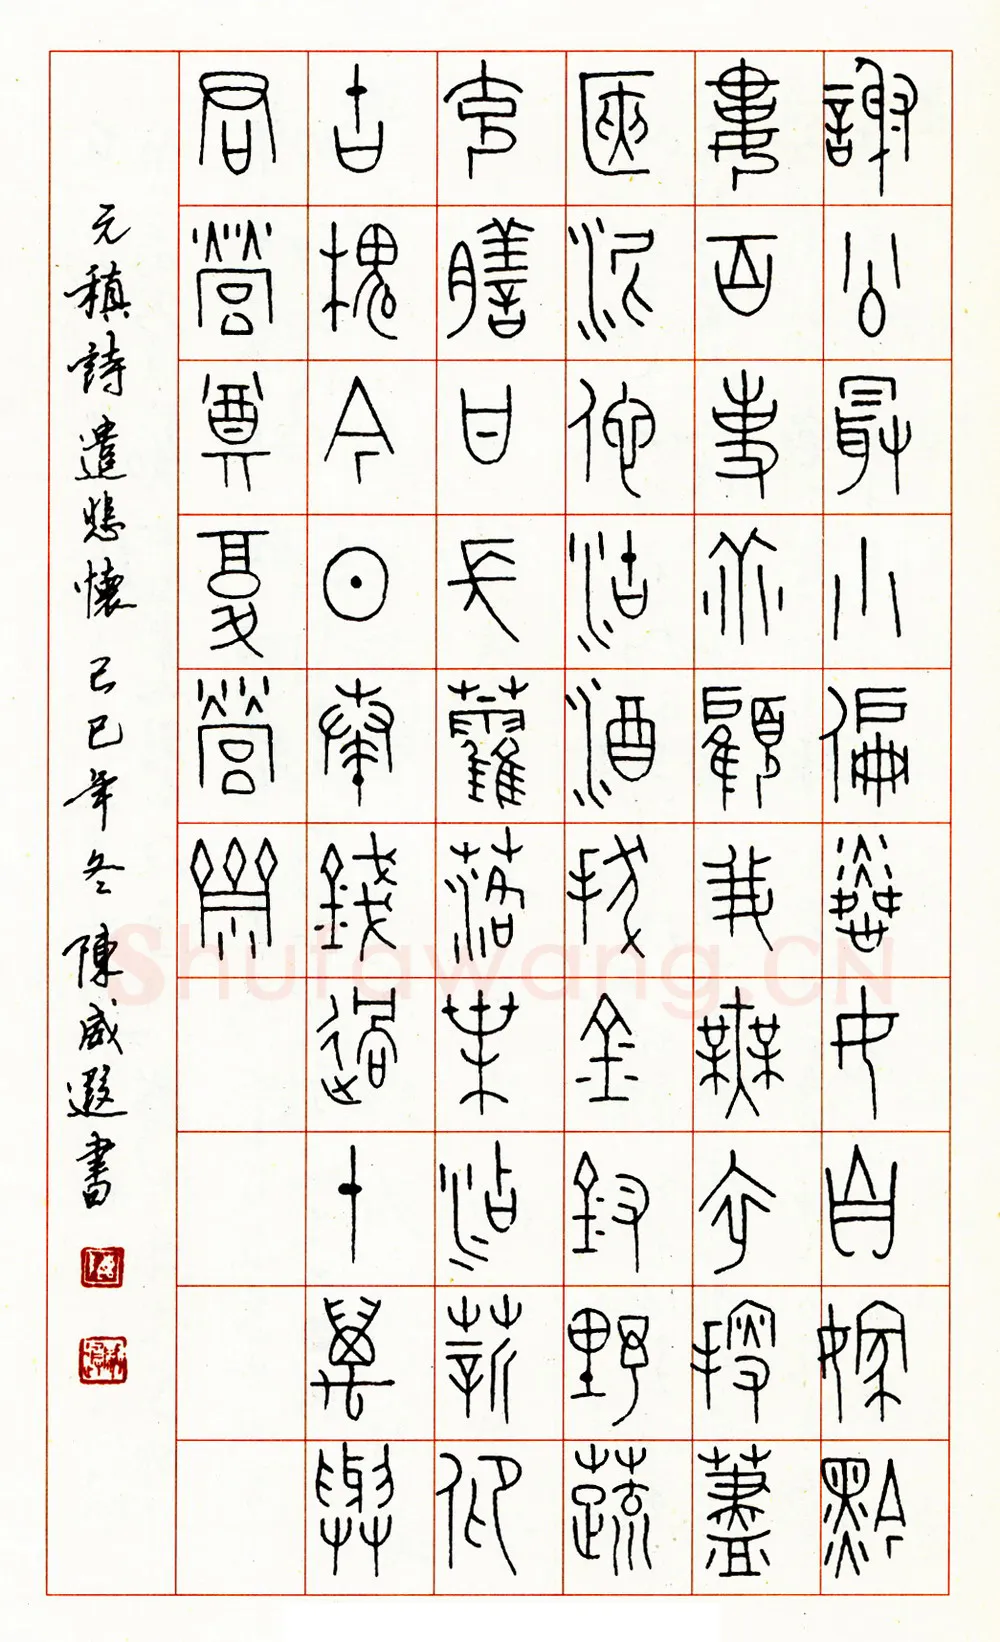 謝公最小偏憐女自嫁黔
婁百事乖顧我無衣搜藎
篋泥他沽酒拔金釵野蔬
充膳甘長藿落葉添薪仰
古槐今日俸錢過十萬與
君營奠復營齋
元稹詩遣悲懷 己巳年冬 陳威遐書
Shufawang.CN